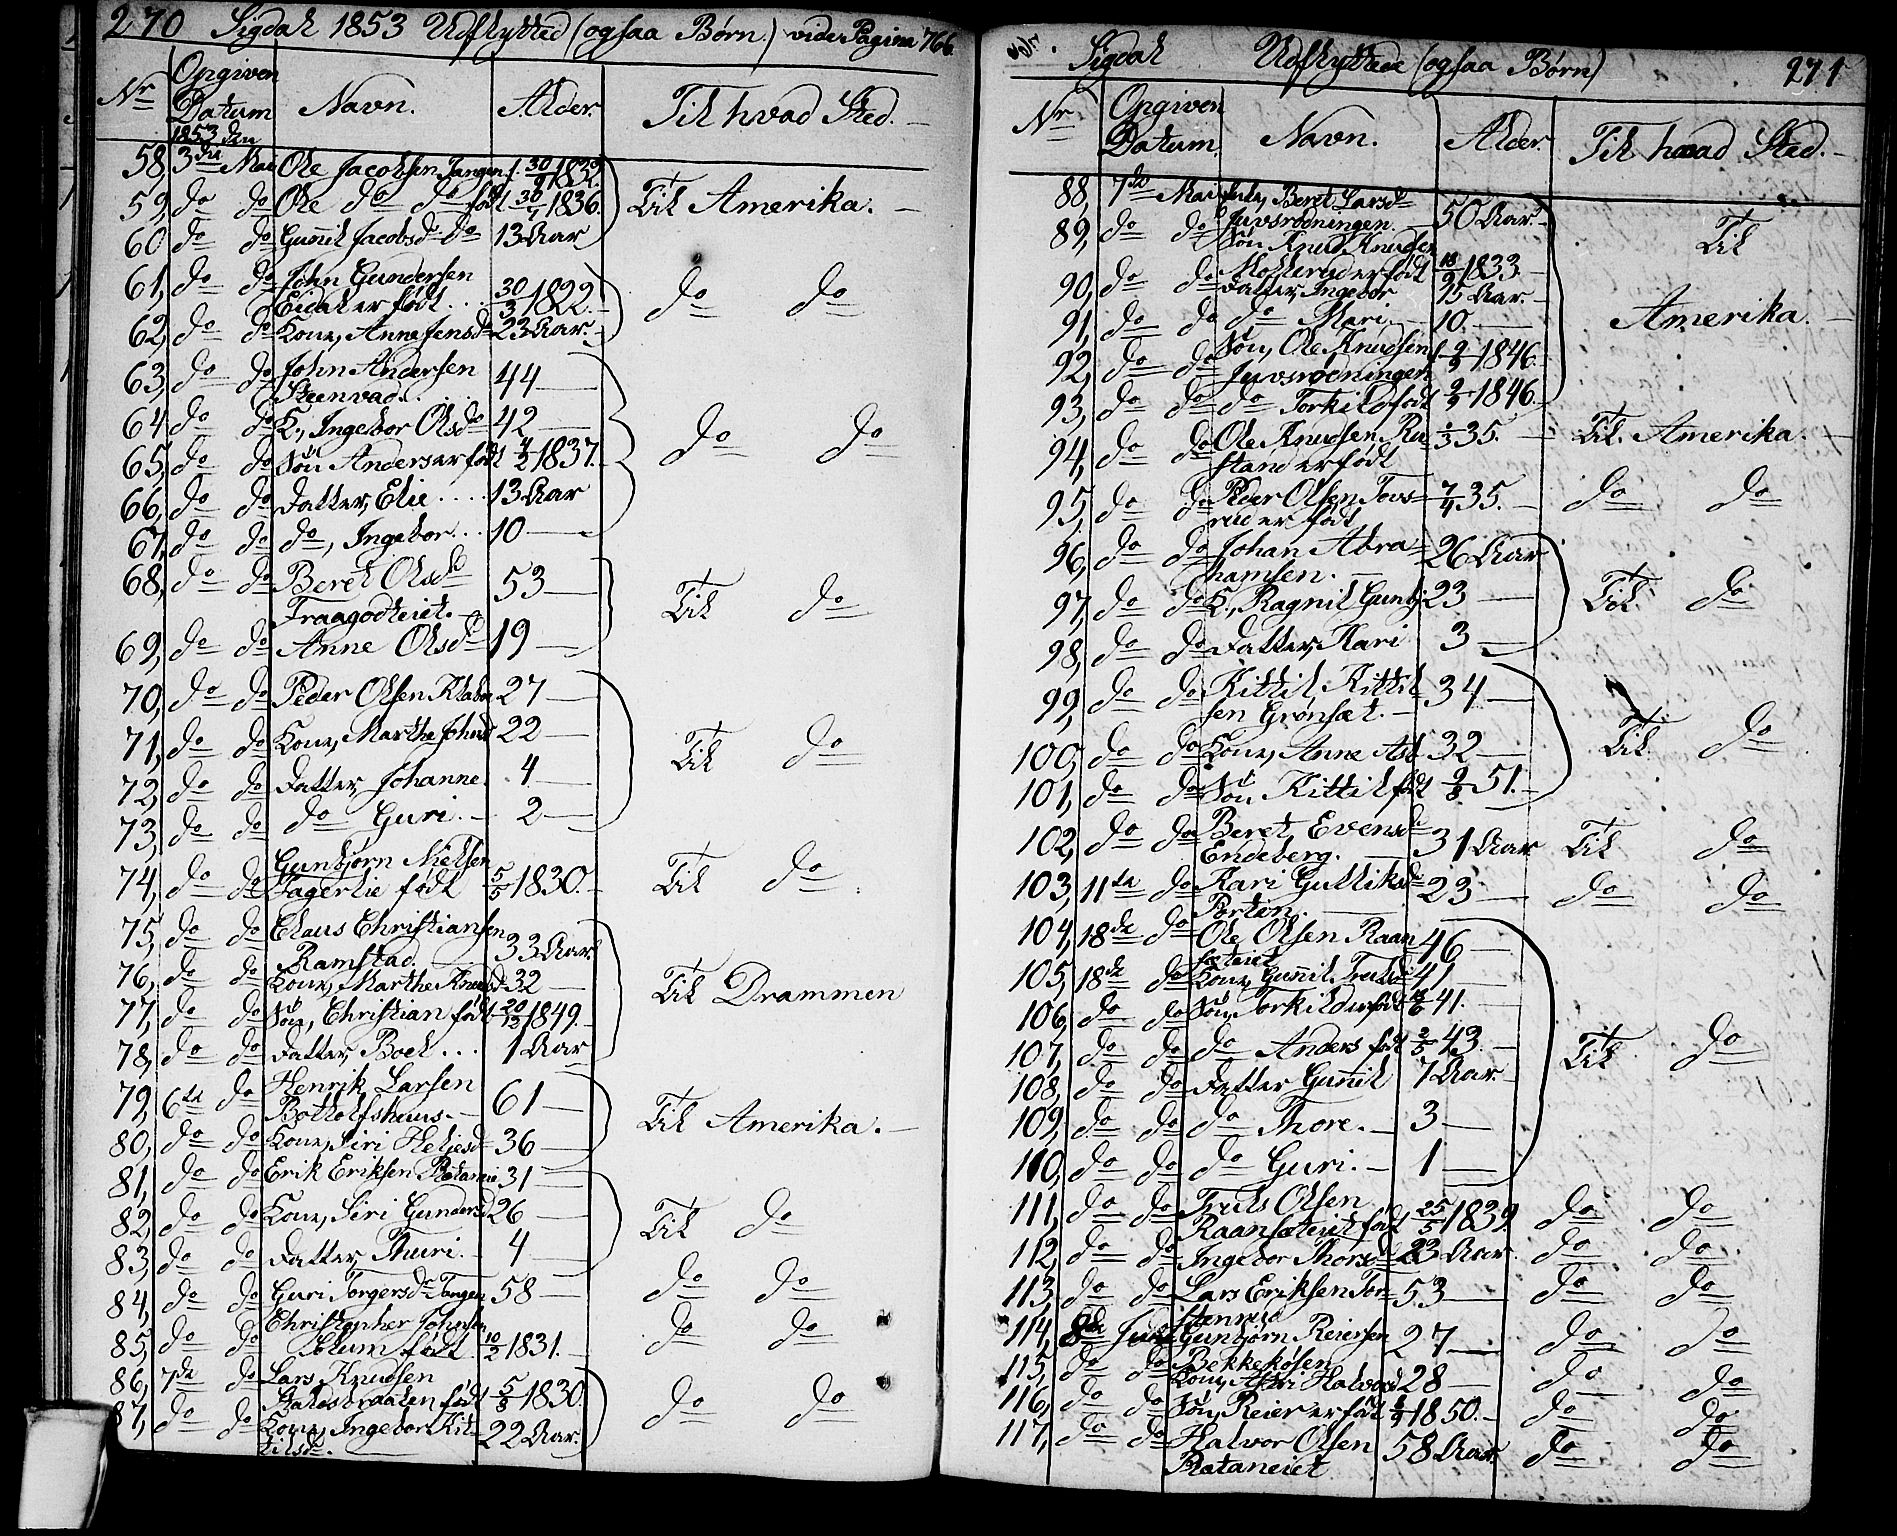 270 Sigdal 1853 Udflytted (ogsaa Børn.) vide Pagina 766
Nr Opgiven Datum Navn. Alder. Til hvad Sted.
1853 den
58, 3die Mai Ole Jacobsen Tangen f. 30/9 1832.
59, do do Ole do do født 30/7 1836. Til Amerika.
60 do do Gunnil Jacobsd do 13 Aar
61, do do John Gundersen
Eidal er født ... 30/3 1822. do do
62, do do Kone, Anne Jensd 23 Aar
63, do do John Andersen 44
Steenvad.
64 do do K., Ingebor Olsd 42 do do
65, do do Søn Anders er født 4/2 1837.
66, do do Datter, Elie .... 13 Aar
67, do do do, Ingebor... 10
68, do do Beret Olsd 53
Fraagodteiet. Til do
69, do do Anne Olsd 19
70, do do Peder Olsen 27
71, do do Kone, Marthe Johnsd 22 Til do
72, do do Datter, Johanne. 4
73, do do do Guri. 2
74, do do Gunbjørn Nielsen
Fagerlie født 5/5 1830. Til do
75, do do Claus Christiansen 33 Aar
Ramstad.
76, do do Kone, Marthe Knudsd 32 Til Drammen
77, do do Søn, Christian født 20/12 1849.
78, do do Datter, Boel ... 1 Aar
79, 6te do Henrik Larsen 61
Botholfshuus. Til Amerika.
80, do do Kone, Siri Heljesd 36
81, do do Erik Eriksen 31
82, do do Kone, Siri Gundersd 26 Til do
83, do do Datter, Thuri. 4
84, do do Guri Torgersd Tangen 58 do do
85, do do Christopher Johnsen
Solum født 10/2 1831. do do
86, 7de do Lars Knudsen
født 5/8 1830. do do
87, do do Kone, Ingebor Kit- 22 Aar.
tilsd.
Sigdal Udflyttede (ogsaa Børn) 271
Nr Opgiven Datum. Navn. Alder. Til hvad Sted.
88, 7de Mai Enke, Beret Larsd 50 Aar. Til
Juvsrødningen.
89, do do Søn Knud Knudsen
er født 18/9 1833.
90, do do Datter, Ingebor 15 Aar. Amerika.
91, do do do Mari 10.
92, do do Søn, Ole Knudsen f. 2/9 1846.
Juvsrødningen
93, do do do Torkild født 2/9 1846
94, do do Ole Knudsen Ru- 1/3 35. Til Amerika.
stand er født
95, do do Peder Olsen Tovs- 7/4 35. do do
rud er født
96, do do Johan Abra- 26 Aar
hamsen.
97, do do K., Ragnil Gunbj 23 Til do
98, do do Datter, Kari 3
99, do do Kittil Kittil- 34
sen Grønsæt.
100, do do Kone, Anne Asl 32 Til do
101, do do Søn Kittil født 9/8 51.
102, do do Beret Evensd 31 Aar Til do
Endeberg.
103, 11te do Kari Gulliksd 23 do do
Porten.
104, 18de do Ole Olsen Raan 46
sæteiet
105, 18de do Kone, Gunnil Trulsd 41
106, do do Søn, Torkild er født 41.
107, do do do Anders født 2/5 43. Til do
108, do do Datter Gunnil 7 Aar.
109, do do do Thore. 3
110, do do do Guri. 1
111, do do Truls Olsen
Raansæteiet født 25/5 1839 do do
112, do do Ingebor Thorsd 23 Aar do do
113, do do Lars Eriksen Tor- 53 do do
stenrud
114, 8de Juni Gunbjørn Reiersen 27 do do
Bekkekøsen
115, do do Kone, Halvorsd 28 do do
116, do do Søn, Reier er født 1850. do do
117, do do Halvor Olsen 58 Aar. do do
Rataneiet